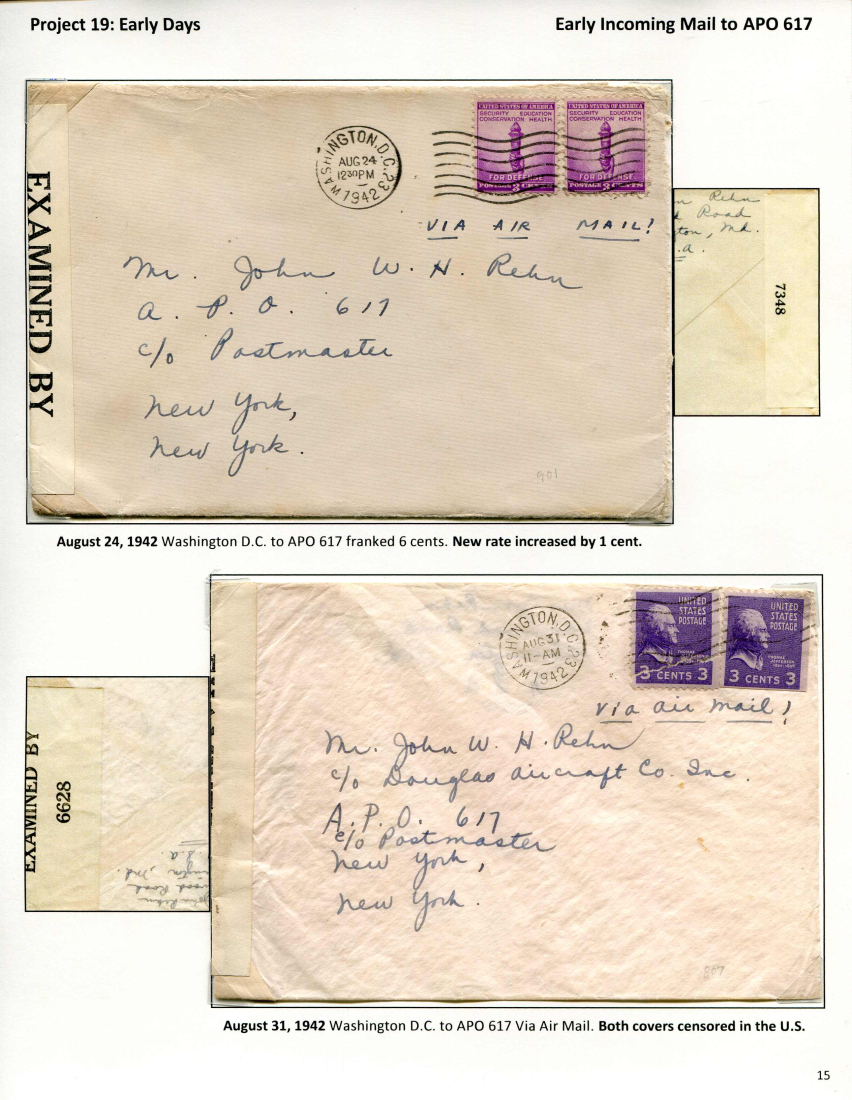 Project 19: Early Days
Early Incoming Mail to APO 617
EXAMINED BY
WASHINGTON, D.C. 23
AUG 24
1230PM
1942
UNITED STATES OF AMERICA
SECURITY EDUCATION
CONSERVATION HEALTH
FOR DEFENSE
POSTAGE 3 CENTS
UNITED STATES OF AMERICA
SECURITY EDUCATION
CONSERVATION HEALTH
FOR DEFENSE
POSTAGE 3 CENTS
VIA AIR MAIL!
Mr. John W. H. Rehn
A. P. O. 617
c/o Postmaster
New York,
New York.
901
Rehn
Road
ton, Md.
.a.
7348
August 24, 1942 Washington D.C. to APO 617 franked 6 cents. New rate increased by 1 cent.
WASHINGTON, D.C. 23
AUG 31
11-AM
1942
UNITED
STATES
POSTAGE
THOMAS
JEFFERSON
3 CENTS 3
UNITED
STATES
POSTAGE
THOMAS
JEFFERSON
3 CENTS 3
via air mail!
Mr. John W. H. Rehn
c/o Douglas Aircraft Co. Inc.
A. P. O. 617
c/o Postmaster
New York,
New York.
807
EXAMINED BY
6628
August 31, 1942 Washington D.C. to APO 617 Via Air Mail. Both covers censored in the U.S.
15